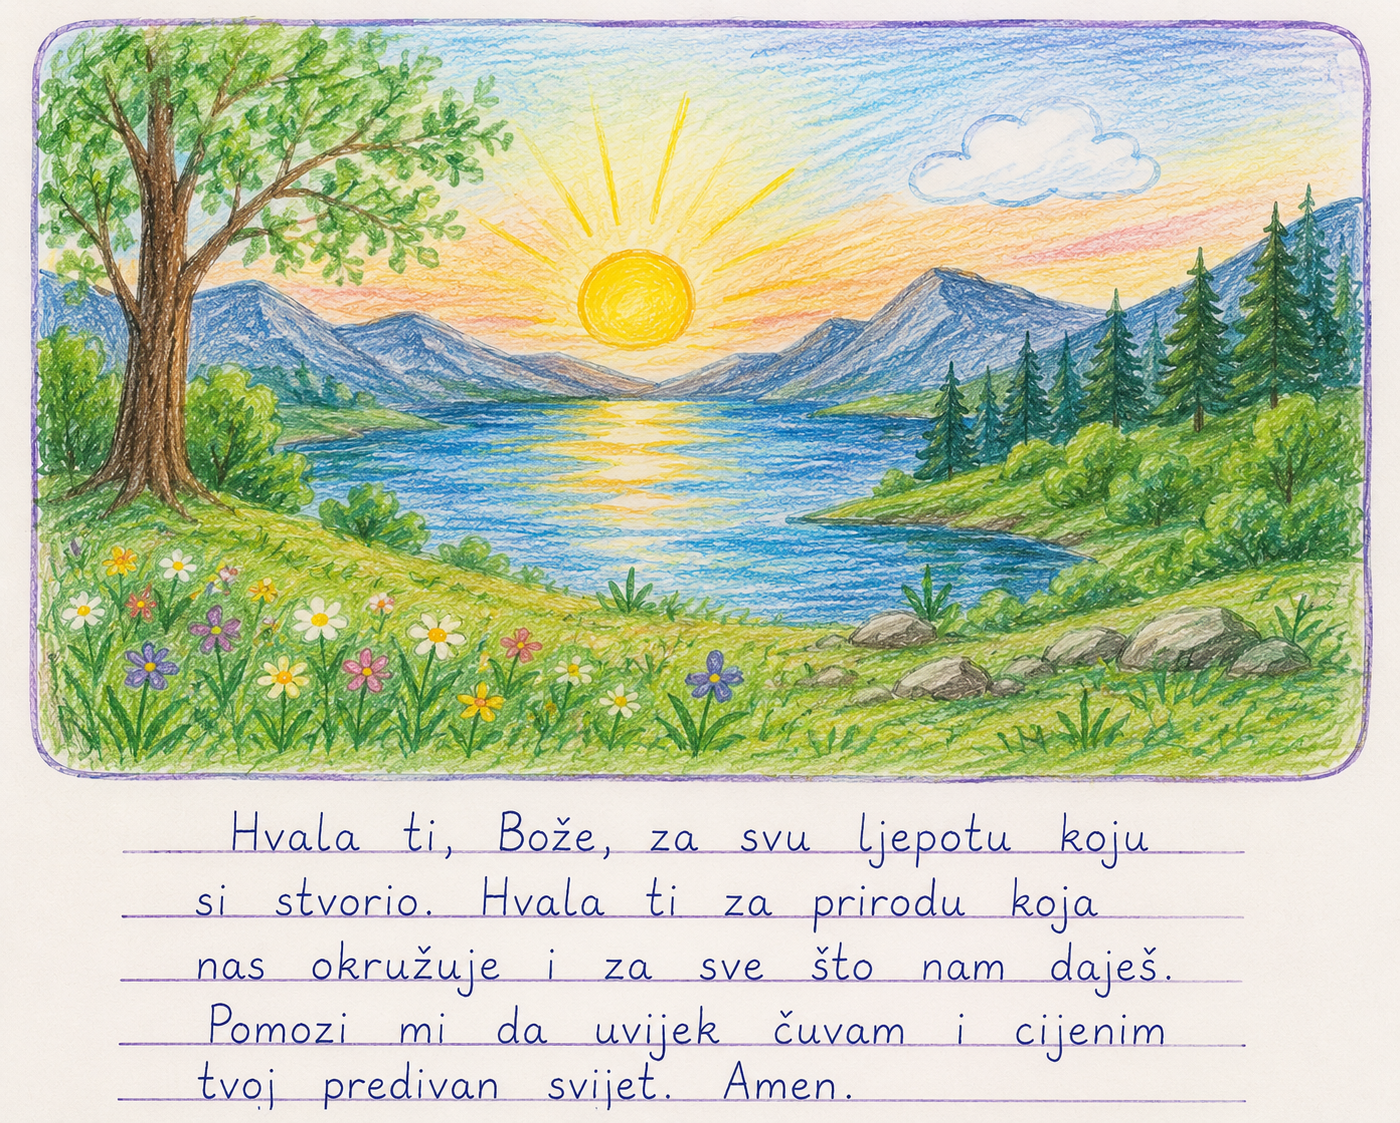 Hvala ti, Bože, za svu ljepotu koju
si stvorio. Hvala ti za prirodu koja
nas okružuje i za sve što nam daješ.
Pomozi mi da uvijek čuvam i cijenim
tvoj predivan svijet. Amen.